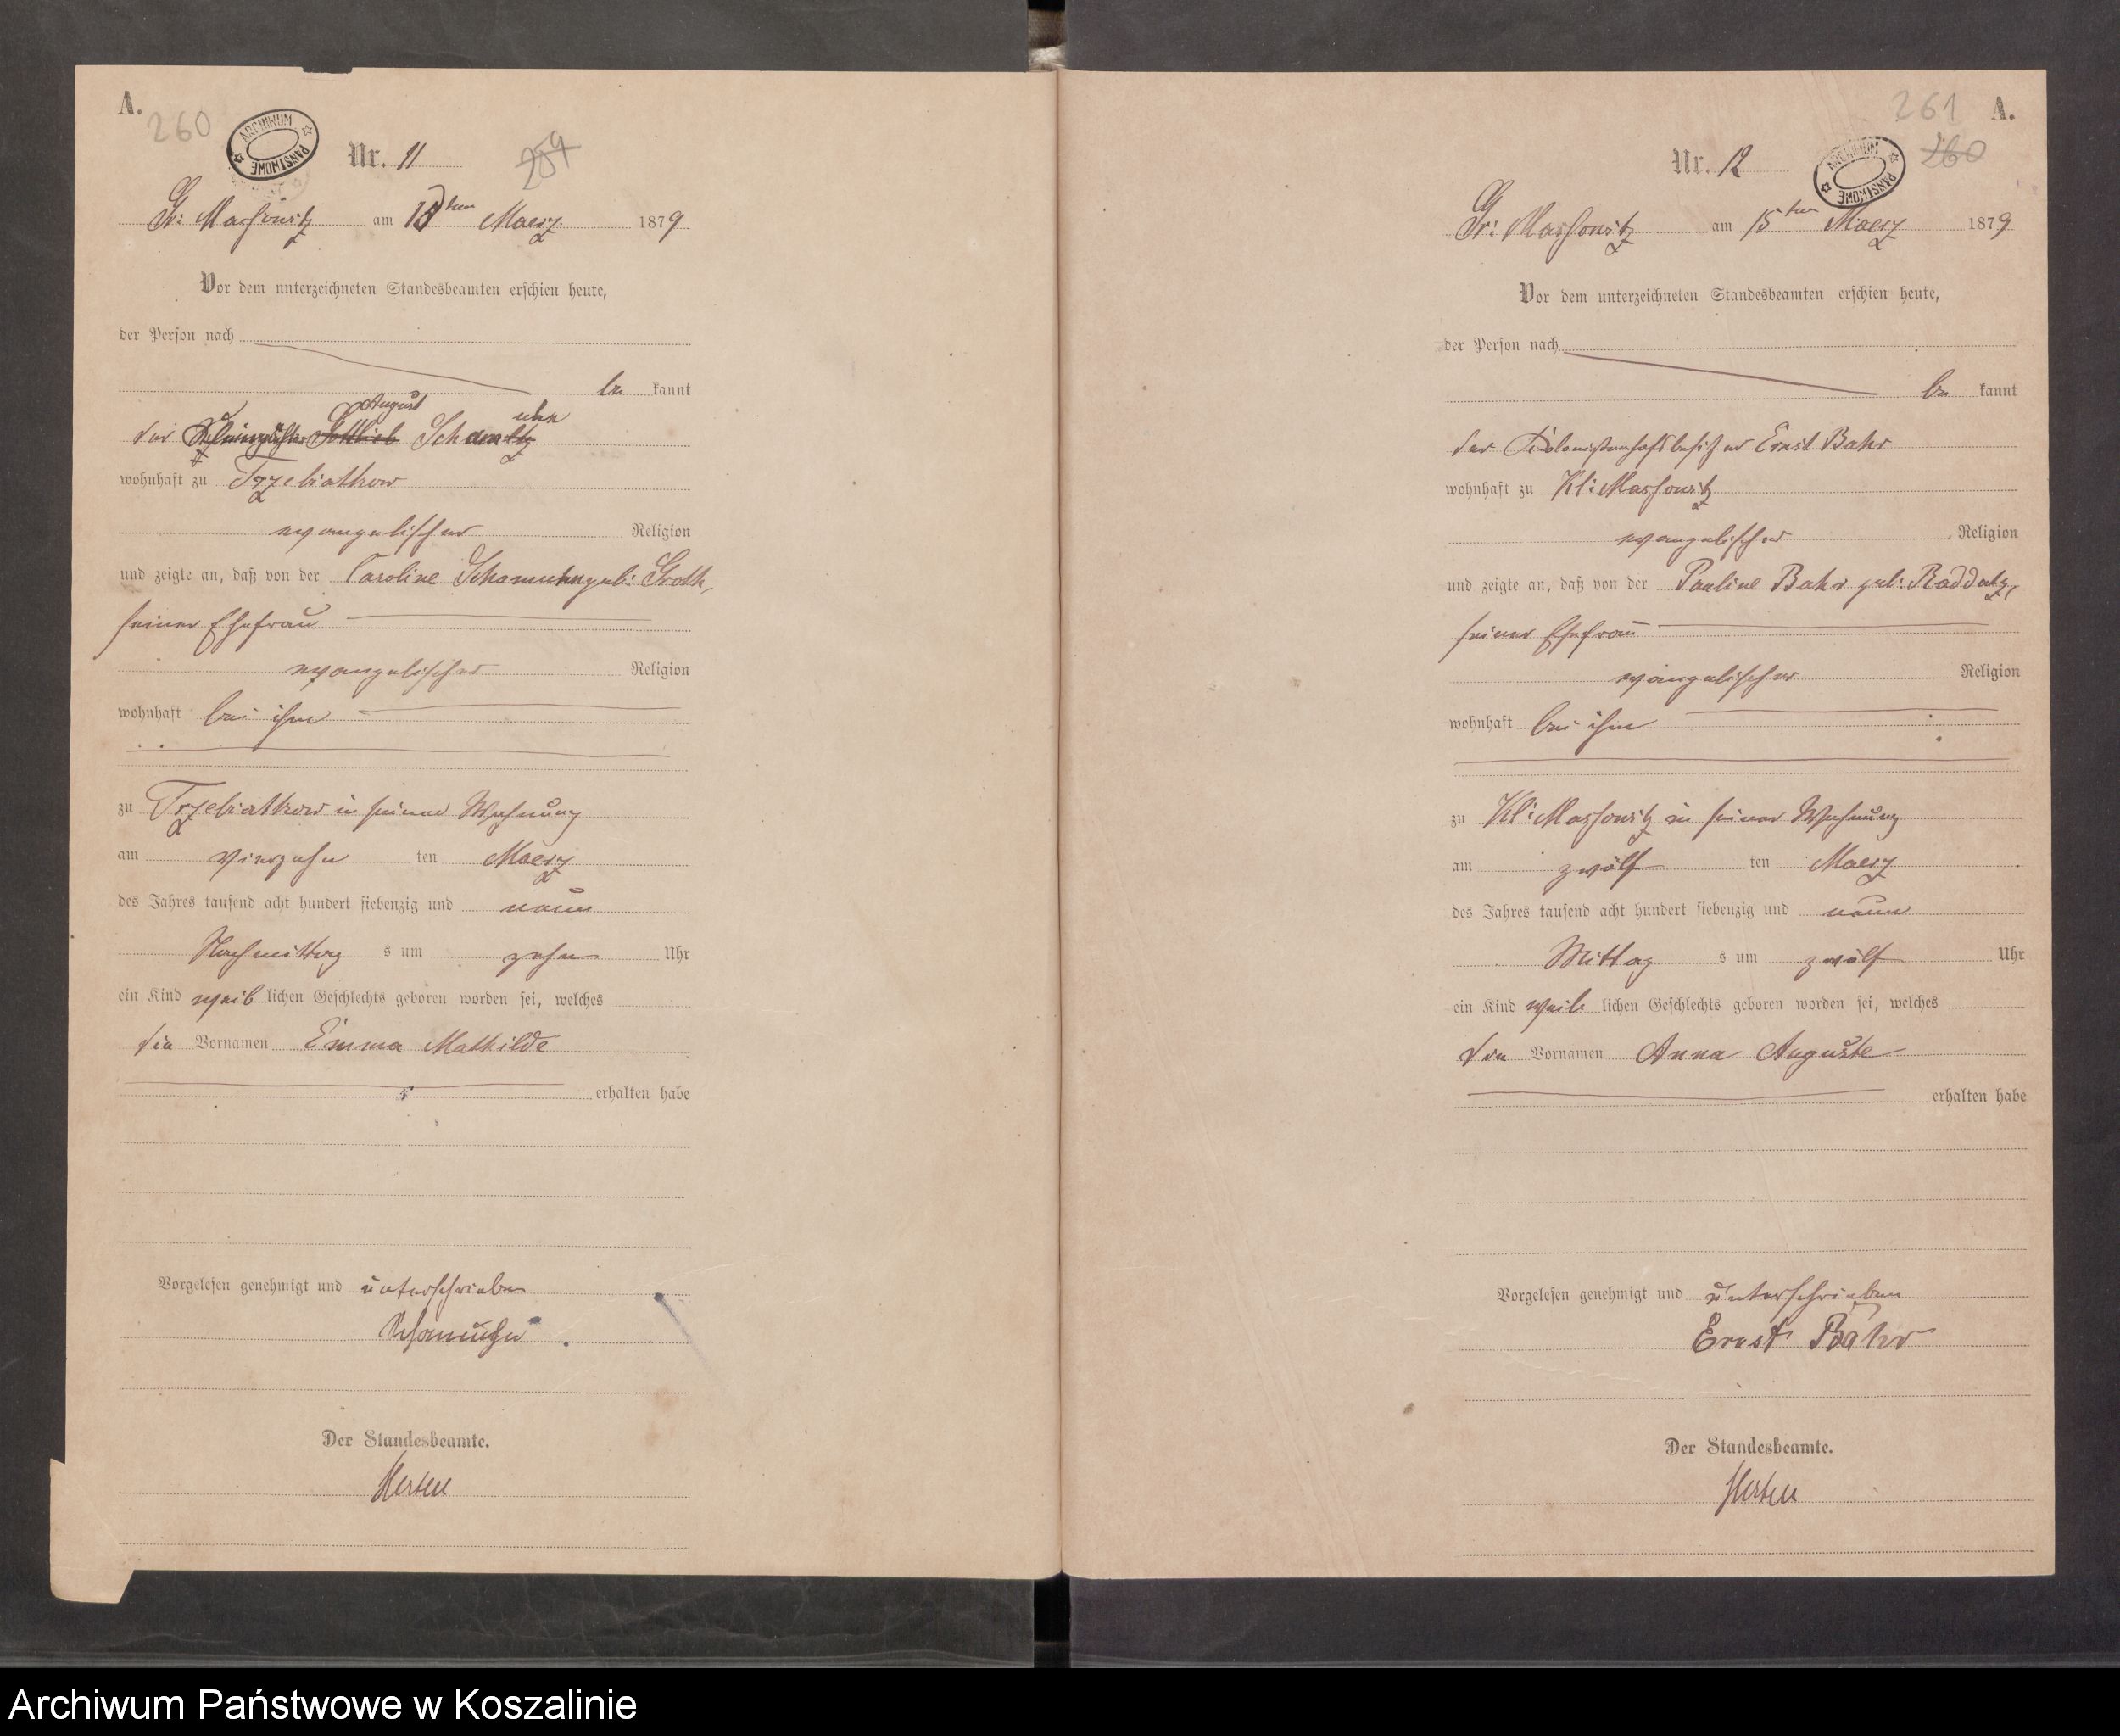 A.
260
ARCHIWUM PAŃSTWOWE
Nr. 11
259
Gr: Massowitz am 15ten Maerz 1879
Vor dem unterzeichneten Standesbeamten erschien heute,
der Person nach
be kannt
August uhn
der Gottlieb Scham
wohnhaft zu Trzebiatkow
evangelischer Religion
und zeigte an, daß von der Caroline Schamuhn geb: Groth,
seiner Ehefrau
evangelischer Religion
wohnhaft bei ihm
zu Trzebiatkow in seiner Wohnung
am vierzehn ten Maerz
des Jahres tausend acht hundert siebenzig und neun
Nachmittag s um zehn Uhr
ein Kind weib lichen Geschlechts geboren worden sei, welches
die Vornamen Emma Mathilde
erhalten habe
Vorgelesen genehmigt und unterschrieben
Schamuhn
Der Standesbeamte.
A.
261
ARCHIWUM PAŃSTWOWE
260
Nr. 12
Gr: Massowitz am 15ten Maerz 1879
Vor dem unterzeichneten Standesbeamten erschien heute,
der Person nach
be kannt
der Kolonistenhofbesitzer Ernst Bahr
wohnhaft zu Kl: Massowitz
evangelischer Religion
und zeigte an, daß von der Pauline Bahr geb: Raddatz,
seiner Ehefrau
evangelischer Religion
wohnhaft bei ihm
zu Kl: Massowitz in seiner Wohnung
am zwölf ten Maerz
des Jahres tausend acht hundert siebenzig und neun
Mittag s um zwölf Uhr
ein Kind weib lichen Geschlechts geboren worden sei, welches
den Vornamen Anna Auguste
erhalten habe
Vorgelesen genehmigt und unterschrieben
Ernst Bahr
Der Standesbeamte.
Archiwum Państwowe w Koszalinie